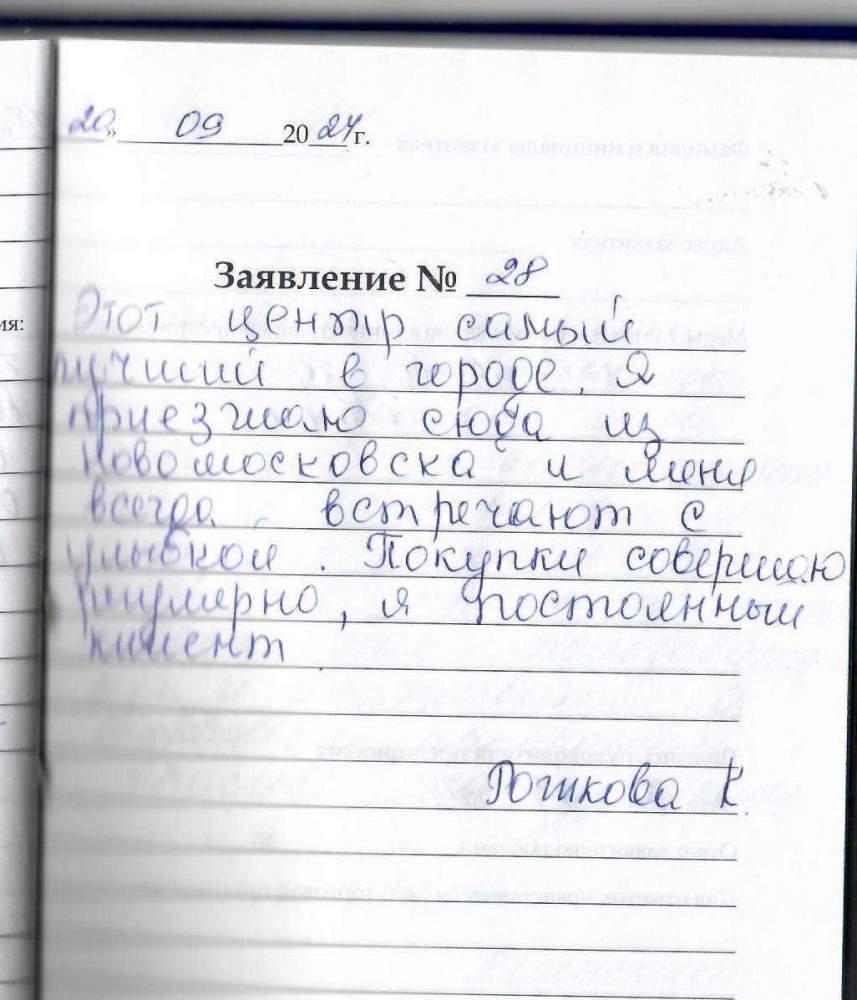 20 » 09 2024 г.
Заявление № 28
Этот центр самый
лучший в городе. Я
приезжаю сюда из
Новомосковска и меня
всегда встречают с
улыбкой. Покупки совершаю
регулярно, я постоянный
клиент.
Рожкова К.
ия: